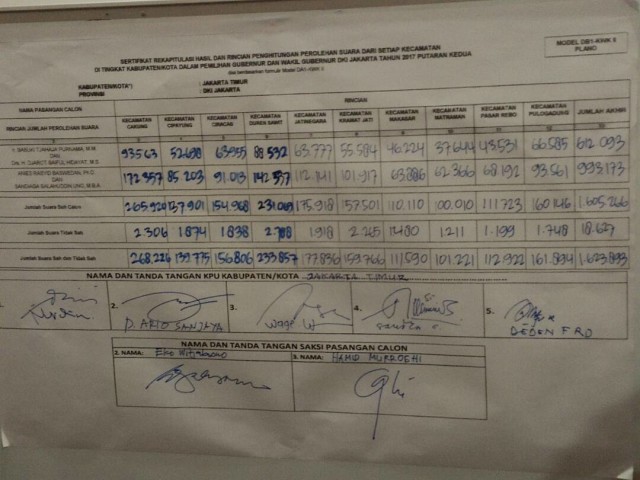 MODEL DB1-KWK 5
PLANO
SERTIFIKAT REKAPITULASI HASIL DAN RINCIAN PENGHITUNGAN PEROLEHAN SUARA DARI SETIAP KECAMATAN
DI TINGKAT KABUPATEN/KOTA DALAM PEMILIHAN GUBERNUR DAN WAKIL GUBERNUR DKI JAKARTA TAHUN 2017 PUTARAN KEDUA
KABUPATEN/KOTA*) : JAKARTA TIMUR
PROVINSI : DKI JAKARTA
NAMA PASANGAN CALON RINCIAN
RINCIAN JUMLAH PEROLEHAN SUARA KECAMATAN CAKUNG KECAMATAN CIPAYUNG KECAMATAN CIRACAS KECAMATAN DUREN SAWIT KECAMATAN JATINEGARA KECAMATAN KRAMAT JATI KECAMATAN MAKASAR KECAMATAN MATRAMAN KECAMATAN PASAR REBO KECAMATAN PULOGADUNG JUMLAH AKHIR
Ir. BASUKI TJAHAJA PURNAMA, M.M
DAN
Drs. H. DJAROT SAIFUL HIDAYAT, M.S
93.563 52.698 63.955 88.532 63.777 55.584 46.224 37.644 43.531 66.585 612.093
ANIES RASYID BASWEDAN, Ph.D
DAN
SANDIAGA SALAHUDDIN UNO, M.B.A.
172.357 85.203 91.013 142.537 112.141 101.917 63.886 62.366 68.192 93.561 993.173
Jumlah Suara Sah Calon 265.920 137.901 154.968 231.069 175.918 157.501 110.110 100.010 111.723 160.146 1.605.266
Jumlah Suara Tidak Sah 2.306 1.874 1.838 2.788 1.918 2.265 1480 1.211 1.199 1.748 18.627
Jumlah Suara Sah dan Tidak Sah 268.226 139.775 156.806 233.857 177.836 159.766 111.590 101.221 112.922 161.894 1.623.893
NAMA DAN TANDA TANGAN KPU KABUPATEN/KOTA JAKARTA TIMUR
1. 2. 3. 4. 5.
P. ARIO SANJAYA
NAMA DAN TANDA TANGAN SAKSI PASANGAN CALON
2. NAMA: 3. NAMA: HAMID